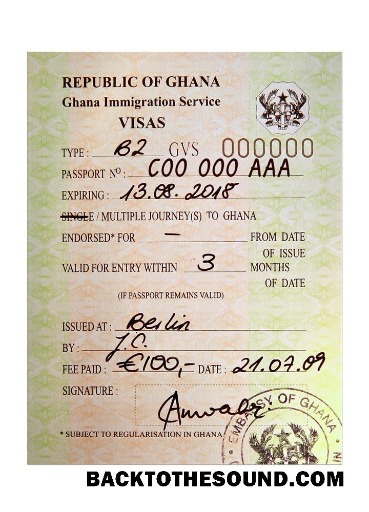 REPUBLIC OF GHANA
Ghana Immigration Service
VISAS
TYPE: B2 GVS 000000
PASSPORT Nº: C00 000 AAA
EXPIRING: 13.08.2018
SINGLE / MULTIPLE JOURNEY(S) TO GHANA
ENDORSED* FOR – FROM DATE
OF ISSUE
VALID FOR ENTRY WITHIN 3 MONTHS
OF DATE
(IF PASSPORT REMAINS VALID)
ISSUED AT: Berlin
BY: J.C.
FEE PAID: €100,- DATE: 21.07.09
SIGNATURE:
* SUBJECT TO REGULARISATION IN GHANA
EMBASSY OF GHANA
BACKTOTHESOUND.COM